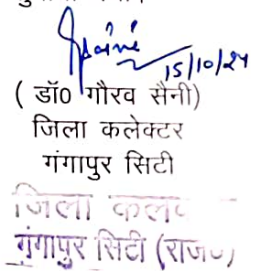 15/10/24
( डॉ0 गौरव सैनी)
जिला कलेक्टर
गंगापुर सिटी
जिला कलक
गंगापुर सिटी (राज०)